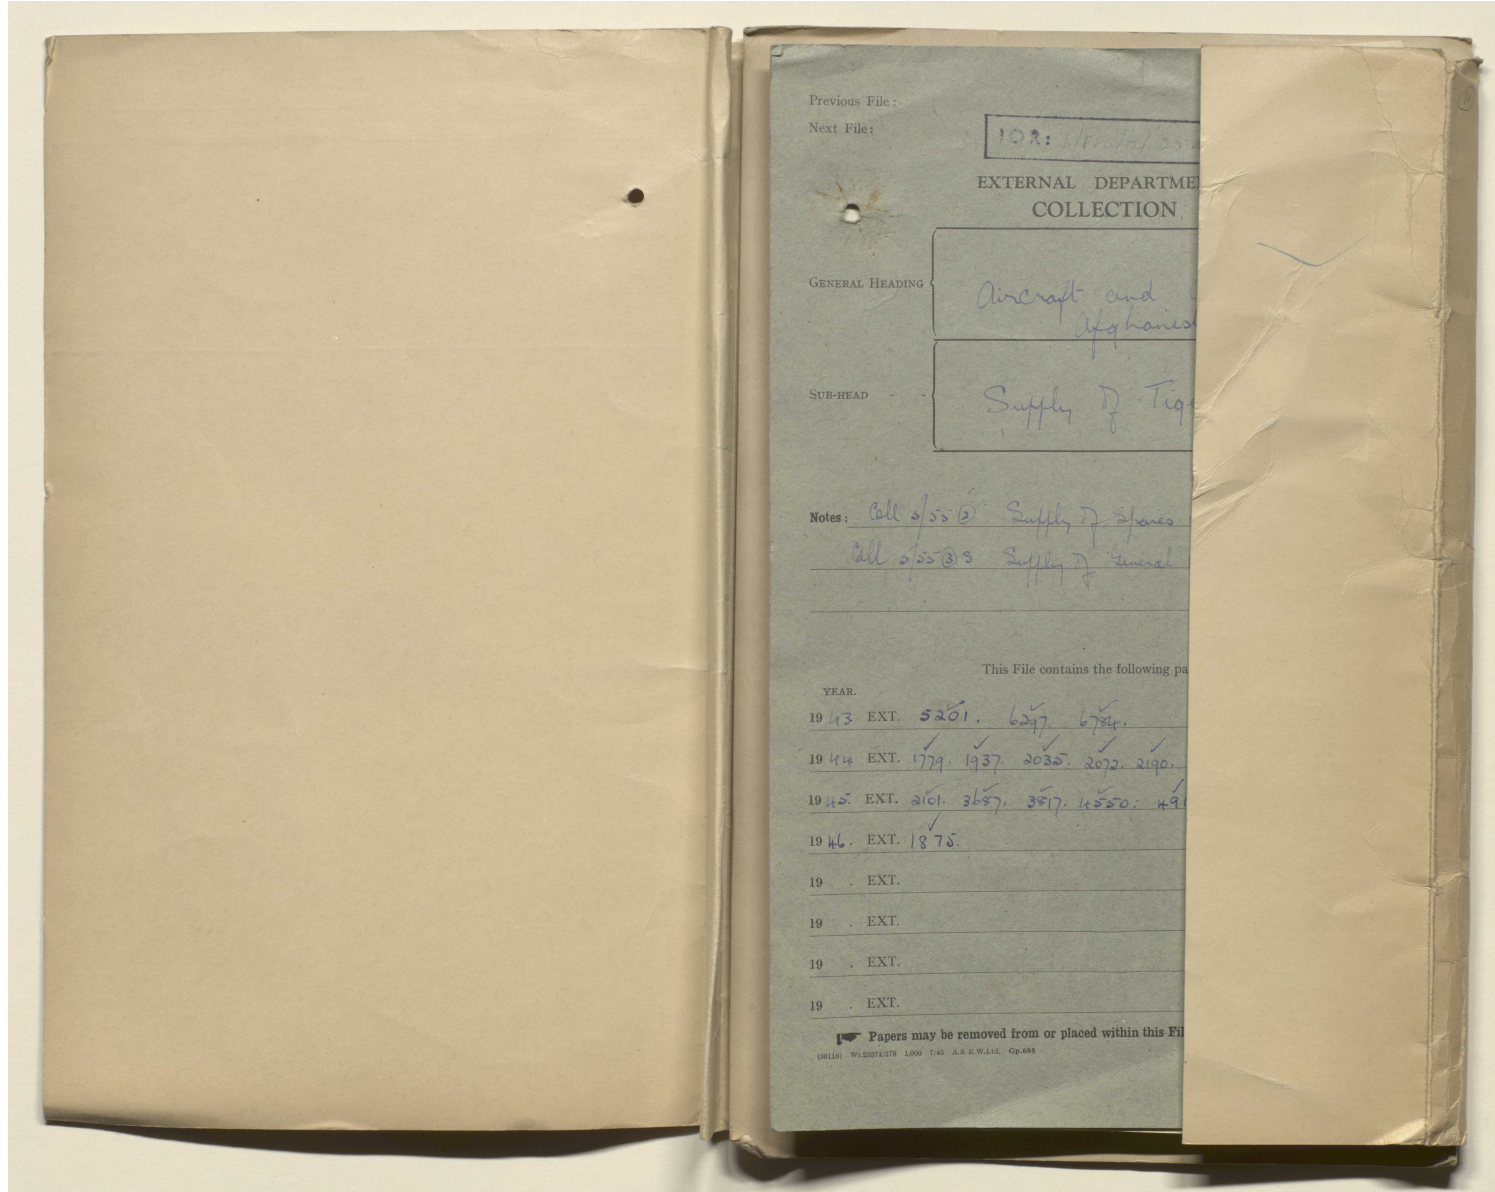 Previous File:
Next File:
IOR:
EXTERNAL DEPARTME
COLLECTION
GENERAL HEADING
Aircraft and
Afghanist
SUB-HEAD - -
Supply of Tige
Notes: Coll 5/55 (2) Supply of Spares
Coll 5/55 (3) S Supply of General
This File contains the following pa
YEAR.
19 43 EXT. 5201. 6297. 6784.
19 44 EXT. 1779. 1937. 2035. 2072. 2190.
19 45. EXT. 2101. 3687. 3817. 4550. 491
19 46. EXT. 1875.
19 . EXT.
19 . EXT.
19 . EXT.
19 . EXT.
Papers may be removed from or placed within this Fil
(30118) Wt.23874/278 1,000 7/45 A.& E.W.Ltd. Gp.685